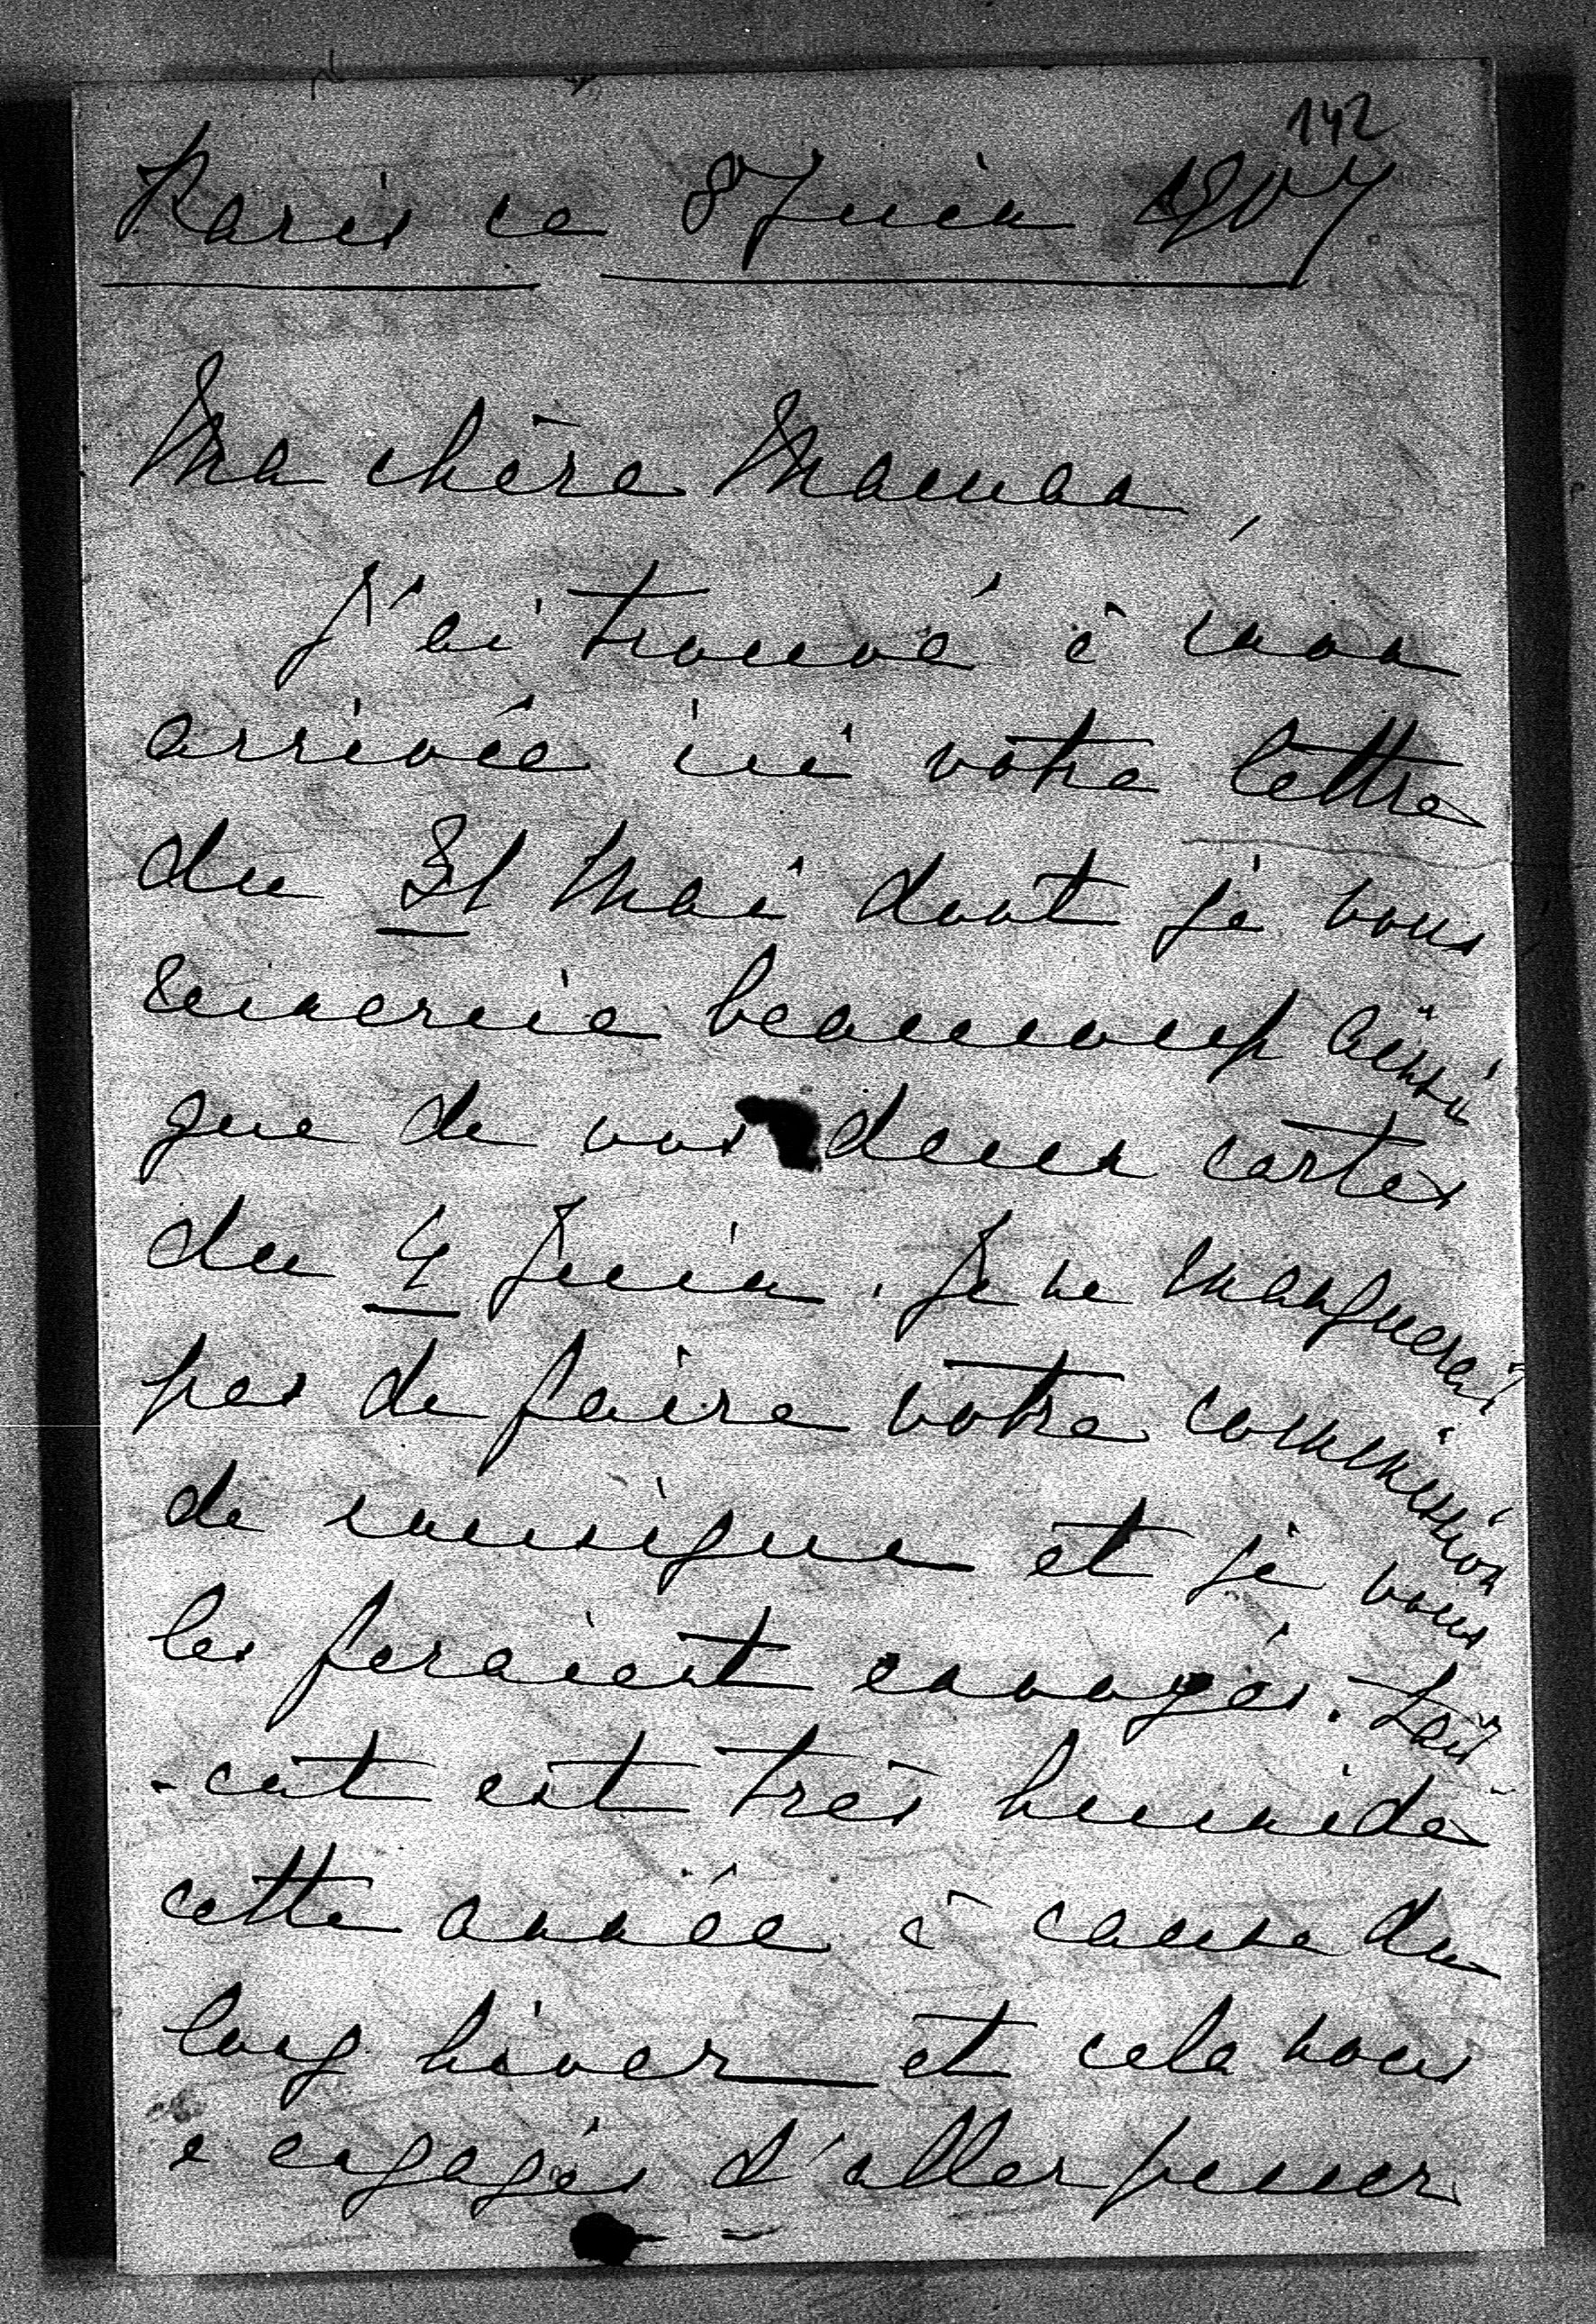 142
Paris ce 8 Juin 1907
Ma chère Maman,
J'ai trouvé à mon
arrivée ici votre lettre
du 31 Mai dont je vous
remercie beaucoup ainsi
que de vos deux cartes
du 4 Juin. Je ne manquerai
pas de faire votre commission
de musique et je vous
les feraient envoyés.
-cat est très humide
cette année à cause du
long hiver et cela nous
a engagés d'aller passer